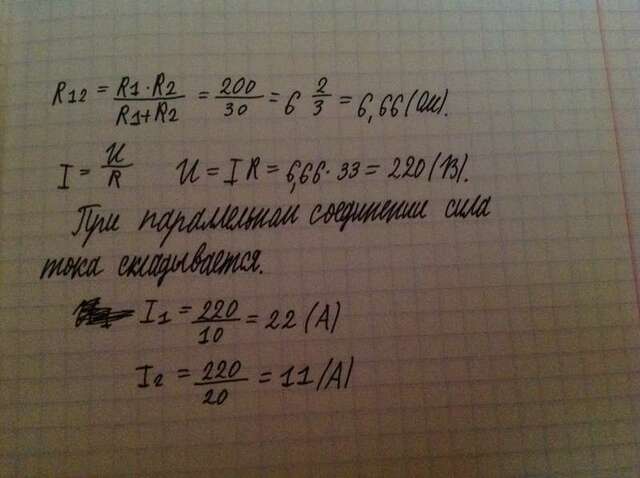 R12 = R1·R2 / R1+R2 = 200/30 = 6 2/3 = 6,66 (Ом).
I = U/R U = I R = 6,66·33 = 220 (В).
При параллельном соединении сила
тока складывается.
I1 = 220/10 = 22 (А)
I2 = 220/20 = 11 (А)